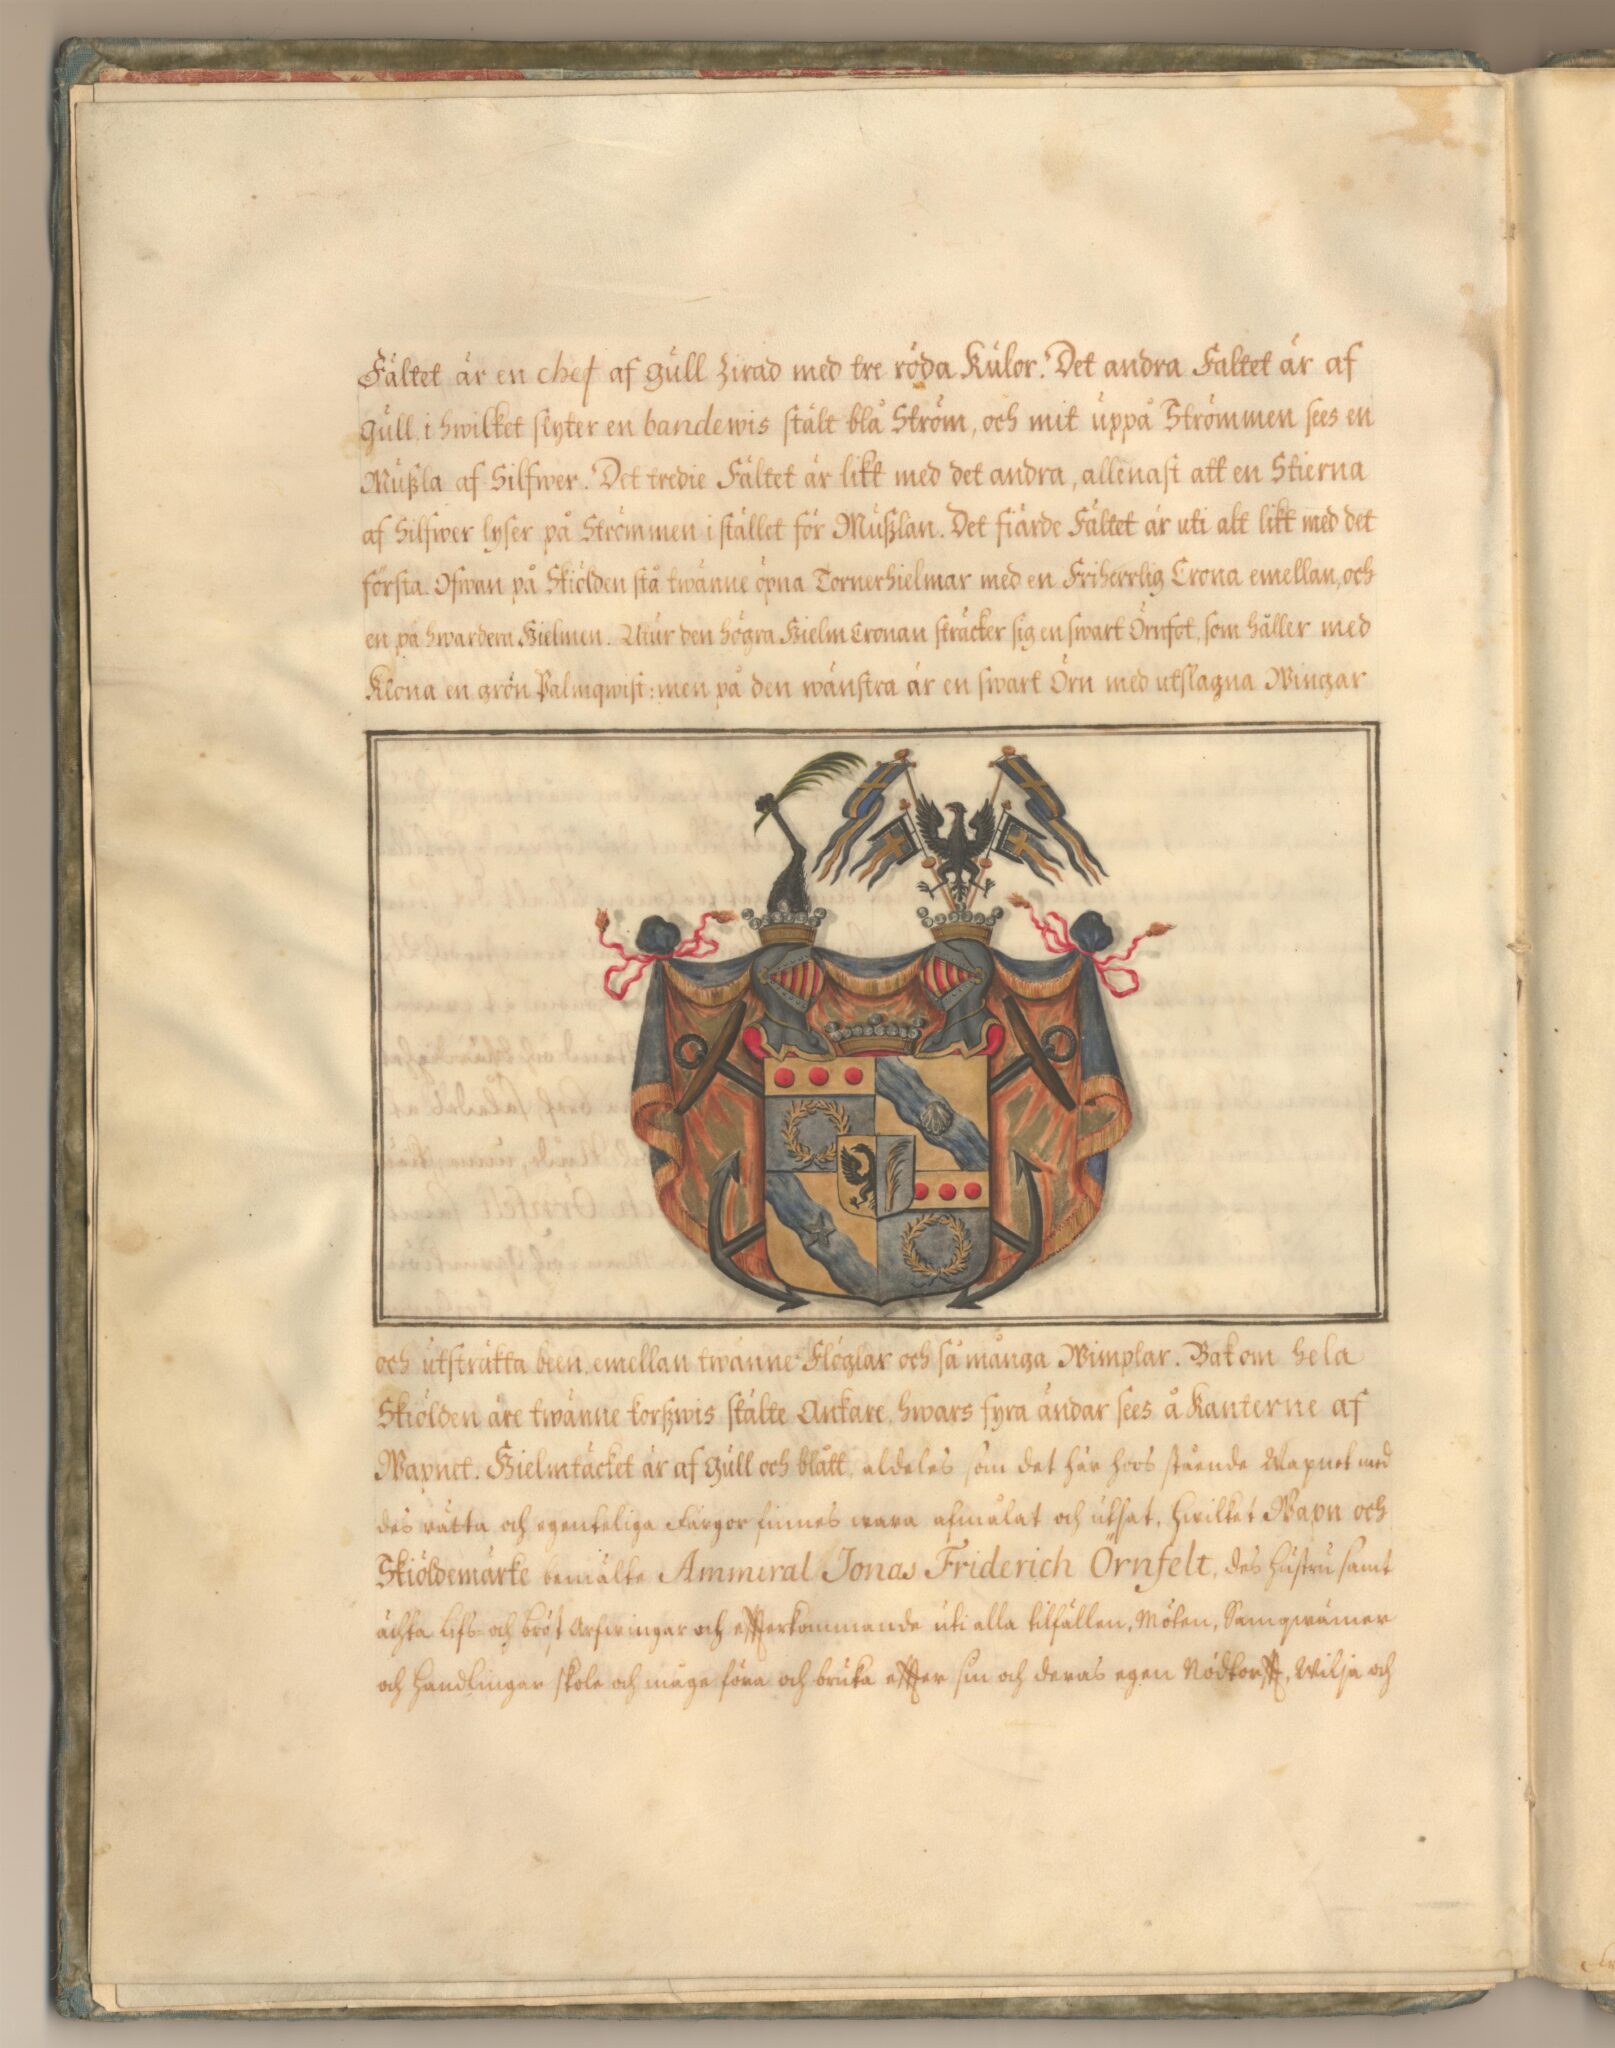 Fältet är en chef af gull zirad med tre röda Kulor. Det andra Fältet är af
gull, i hwilket flyter en bandewis stält blå Ström, och mit uppå Strömmen sees en
Mußla af Silfwer. Det tredie Fältet är likt med det andra, allenast att en Stierna
af Silfwer lyser på Strömmen i stället för Mußlan. Det fiärde Fältet är uti alt likt med det
första. Ofwan på Skiölden stå twänne öpna Tornerhielmar med en Friherrlig Crona emellan, och
en på hwardera Hielmen. Utur den högra Hielm Cronan sträcker sig en swart Örnfot, som håller med
Klona en grön Palmqwist: men på den wänstra är en swart Örn med utslagna Wingar
och utsträkta been, emellan twänne Flöglar och så många Wimplar. Bakom hela
Skiölden äre twänne korßwis stälte Ankare, hwars fyra ändar sees å Kanterne af
Wapnet. Hielmtäcket är af gull och blått, aldeles som det här hoos stående Wapnet med
des rätta och egenteliga Färgor finnes wara afmålat och utsat, hwilket Wapn och
Skiöldemärke bemälte Ammiral Jonas Friderich Örnfelt, des hustru samt
ächta Lifs- och bröst Arfwingar och efterkommande uti alla tilfällen, Möten, Samqwämer
och Handlingar skole och måge föra och bruka efter sin och deras egen Nödtorft, Wilja och